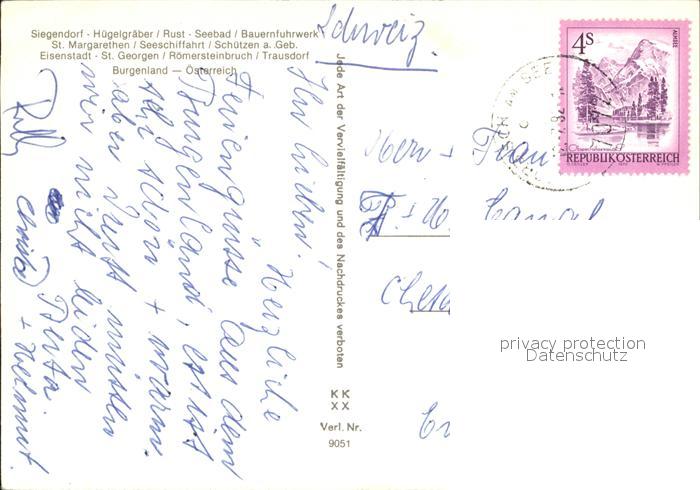 Siegendorf - Hügelgräber / Rust - Seebad / Bauernfuhrwerk
St. Margarethen / Seeschiffahrt / Schützen a. Geb.
Eisenstadt - St. Georgen / Römersteinbruch / Trausdorf
Burgenland — Österreich
Schweiz.
Ihr Lieben!
Herzliche
Feriengrüsse aus dem
Burgenland, es ist
sehr schön + warm.
aber Durst müssen
wir nicht leiden
Berta
+ Helmut.
Jede Art der Vervielfältigung und des Nachdruckes verboten
K K
X X
Verl. Nr.
9051
4S
ALMSEE
REPUBLIK ÖSTERREICH
7072
Herr + Frau
privacy protection
Datenschutz